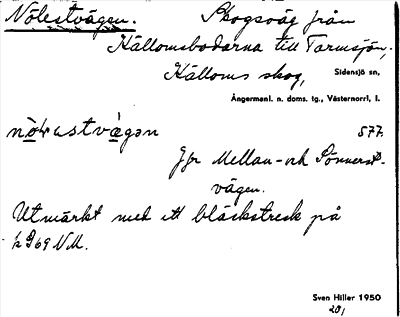 Nölestvägen. Skogsväg från
Källomsbodarna till Tarmsjön,
Källoms skog, Sidensjö sn,
Ångermanl. n. doms. tg., Västernorrl. l.
577.
Jfr Mellan- och Sönnerst-
vägen.
Utmärkt med ett bläckstreck på
N.M.
Sven Hiller 1950